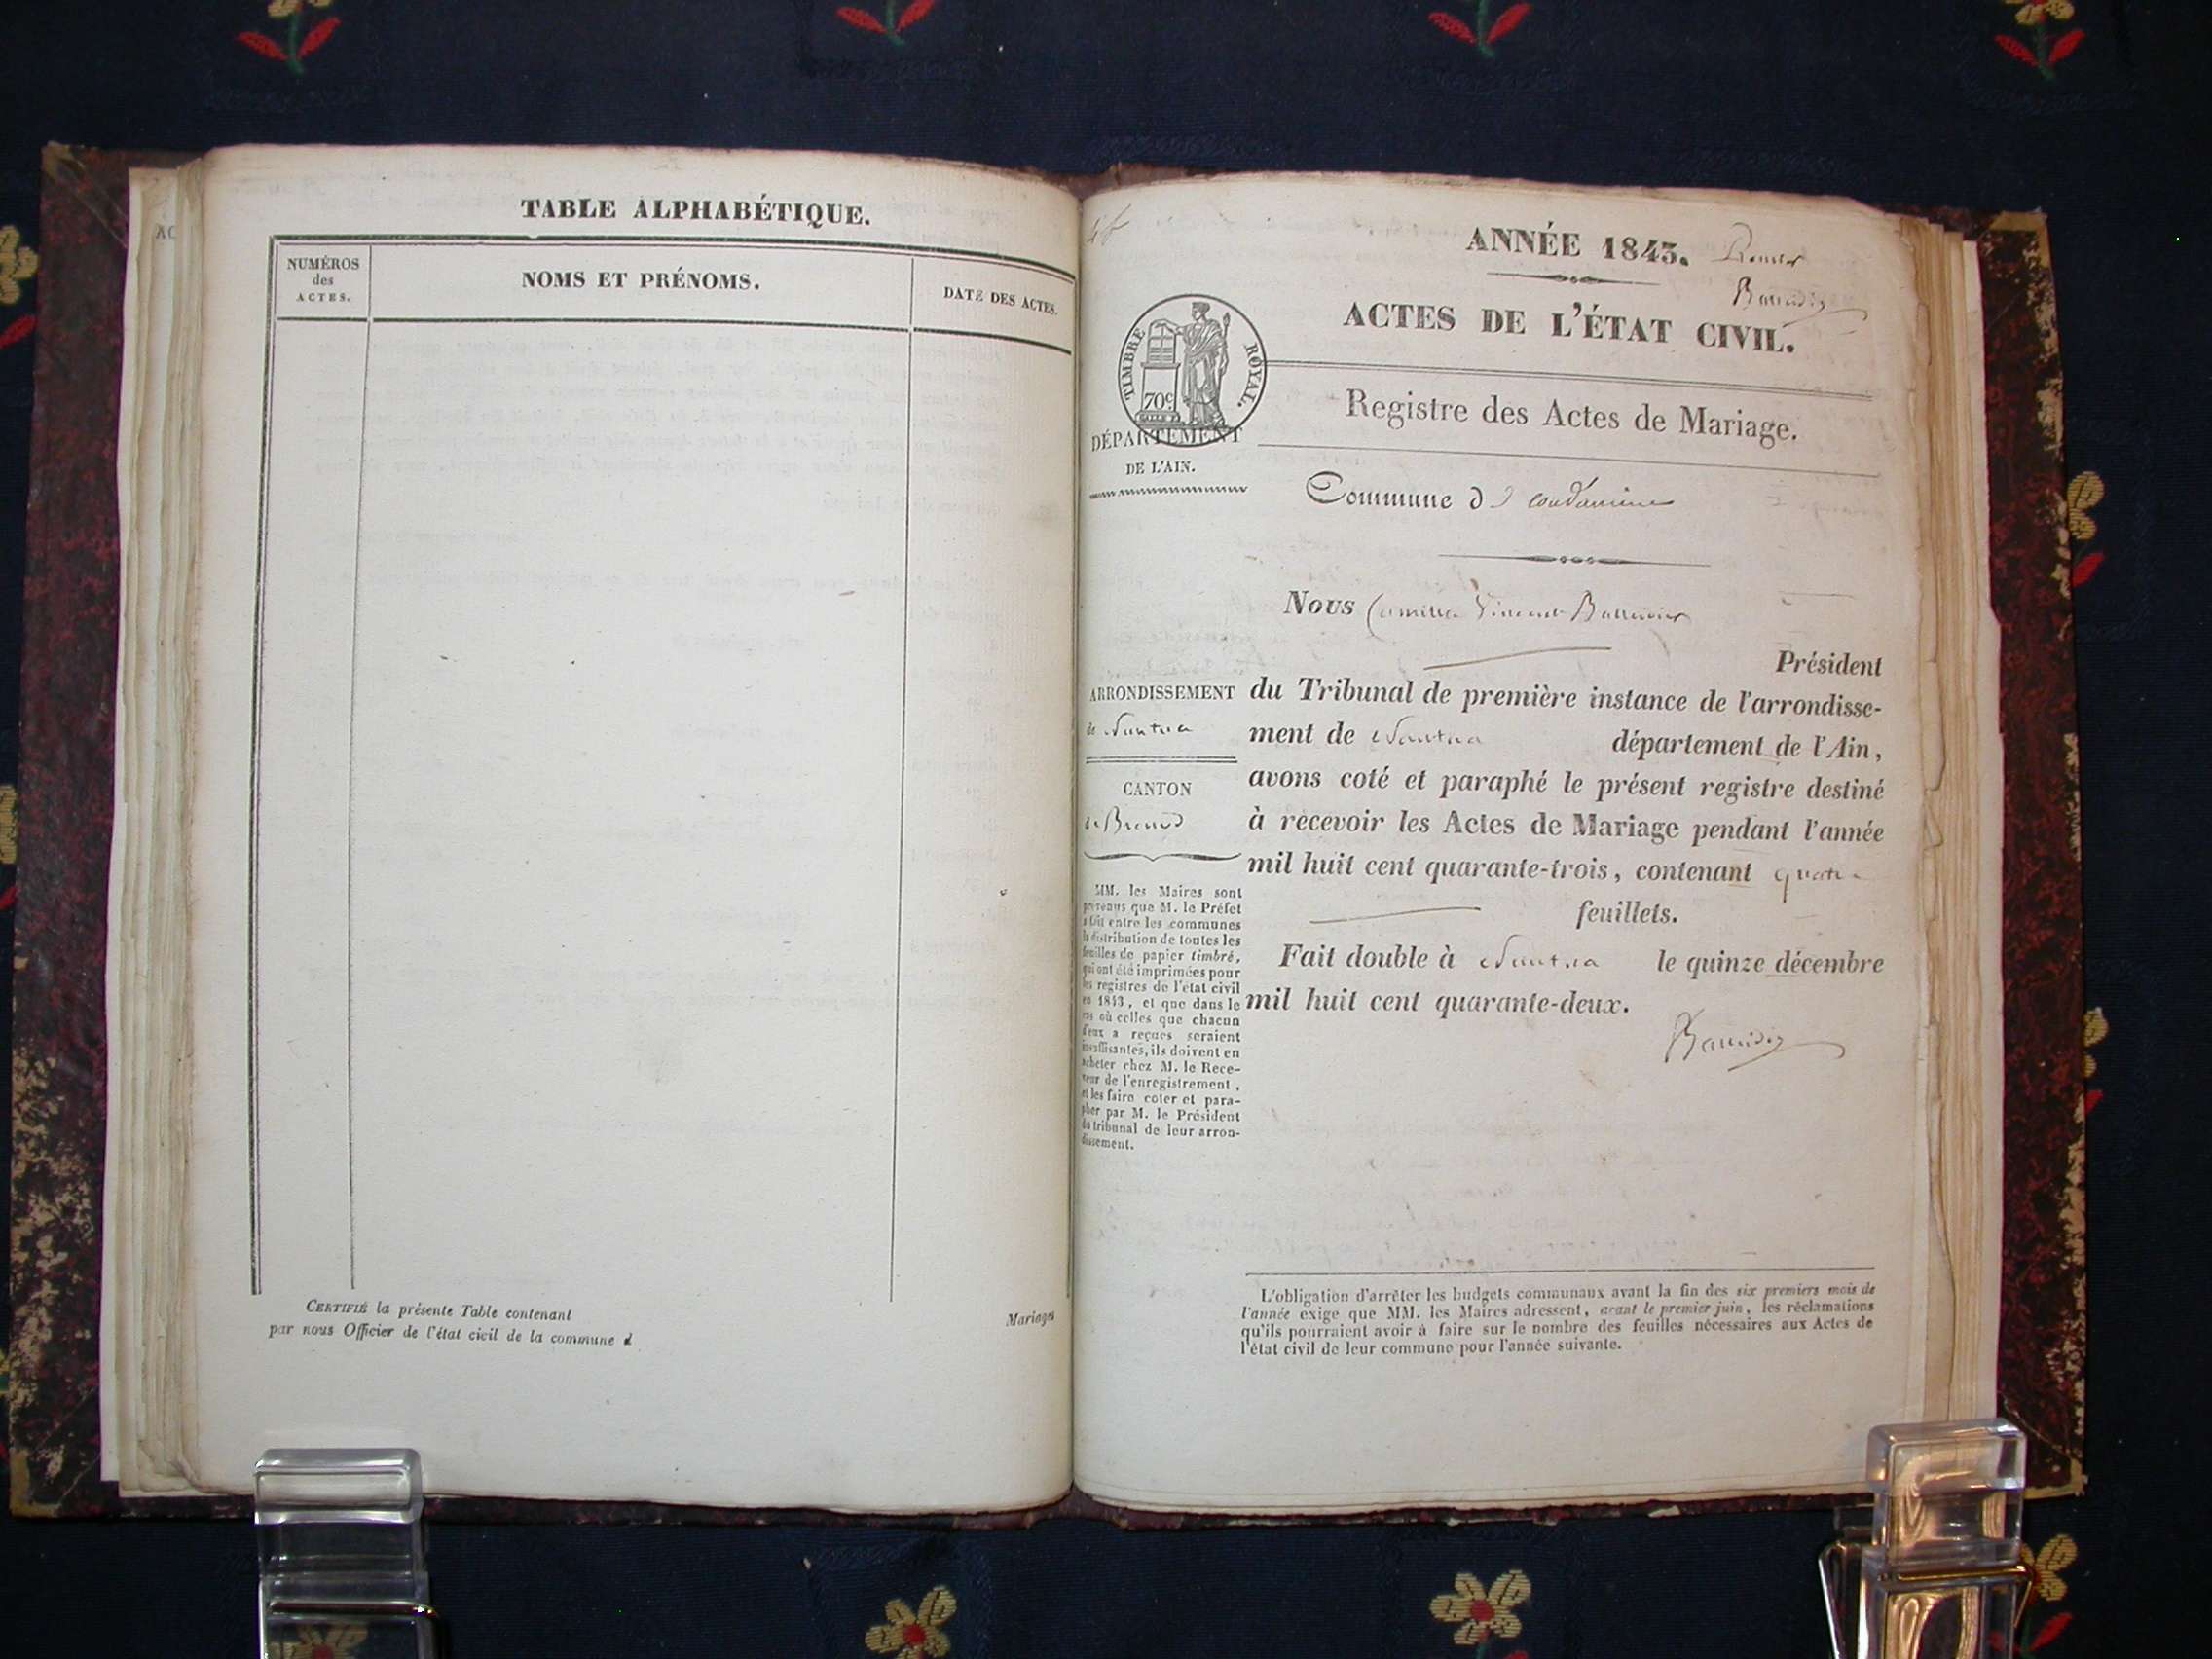 TABLE ALPHABÉTIQUE.
NUMÉROS
des
ACTES.
NOMS ET PRÉNOMS.
DATE DES ACTES.
CERTIFIÉ la présente Table contenant
par nous Officier de l'état civil de la commune d
Mariages
ANNÉE 1843. Premier
ACTES DE L'ÉTAT CIVIL.
TIMBRE ROYAL.
70c
DÉPARTEMENT
DE L'AIN.
Registre des Actes de Mariage.
Commune de condamine
Nous Camille Vincent
Président
ARRONDISSEMENT
de Nantua
CANTON
de Brenod
du Tribunal de première instance de l'arrondisse-
ment de Nantua département de l'Ain,
avons coté et paraphé le présent registre destiné
à recevoir les Actes de Mariage pendant l'année
mil huit cent quarante-trois, contenant quatre
feuillets.
Fait double à Nantua le quinze décembre
mil huit cent quarante-deux.
MM. les Maires sont
prévenus que M. le Préfet
a fait entre les communes
la distribution de toutes les
feuilles de papier timbré,
qui ont été imprimées pour
les registres de l'état civil
en 1843, et que dans le
cas où celles que chacun
d'eux a reçues seraient
insuffisantes, ils doivent en
acheter chez M. le Rece-
veur de l'enregistrement,
et les faire coter et para-
pher par M. le Président
du tribunal de leur arron-
dissement.
L'obligation d'arrêter les budgets communaux avant la fin des six premiers mois de
l'année exige que MM. les Maires adressent, avant le premier juin, les réclamations
qu'ils pourraient avoir à faire sur le nombre des feuilles nécessaires aux Actes de
l'état civil de leur commune pour l'année suivante.